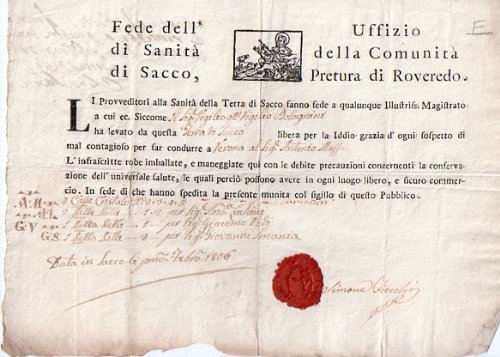 Fede dell' Uffizio
di Sanità della Comunità
di Sacco, Pretura di Roveredo.
LI Provveditori alla Sanità della Terra di Sacco fanno fede a qualunque Illustriss. Magistrato
a cui ec. Siccome Il Sig. Vigilio Bolognini
ha levato da questa Terra di Sacco libera per la Iddio grazia d' ogni sospetto di
mal contagioso per far condurre a Verona al Sig. Antonio Maffei
L' infrascritte robe imballate, e maneggiate qui con le debite precauzioni concernenti la conservazione
dell' universale salute, le quali perciò possono avere in ogni luogo libero, e sicuro commercio.
In fede di che hanno spedita la presente munita col sigillo di questo Pubblico.
2 Casse
2 Dette Dette per Sig.
G:V 1 Detta Dette per Sig. Giacomo
G:S 1 Detta Detta 2 per Sig. Giovanni
Data in Sacco li Febro. 1806
Simone
E